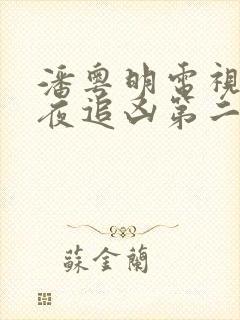 潘粵明電視
夜追凶第二
蘇金蘭